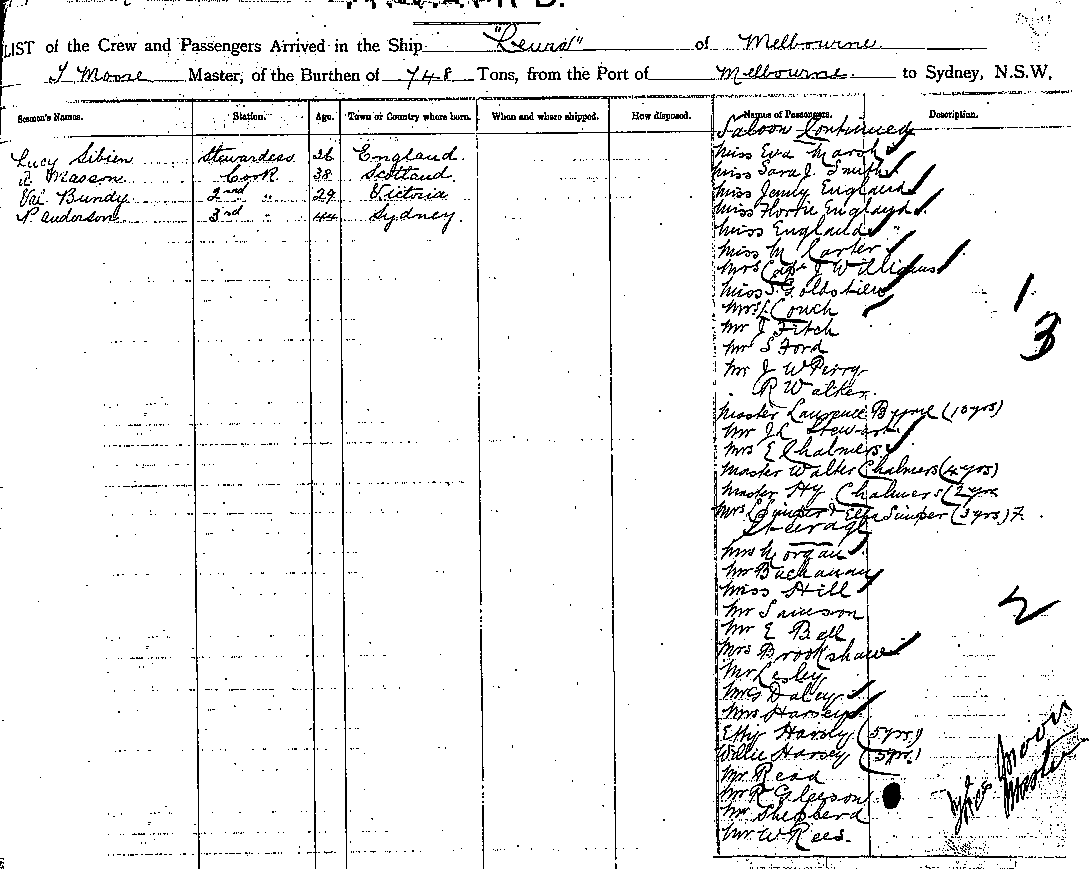 LIST of the Crew and Passengers Arrived in the Ship of Melbourne
J Moore Master, of the Burthen of 748 Tons, from the Port of Melbourne to Sydney, N.S.W.
Seamen's Names. Station. Age. Town or Country where born. When and where shipped. How disposed. Names of Passengers. Description.
Lucy Sibien Stewardess 26 England
A Masson Cook 38 Scotland
Val Bundy 2nd " 29 Victoria
P anderson 3rd " 44 Sydney
Saloon Continued
Miss Eva Marsh
Miss Sara J. Smith
Miss England
Miss England
Miss England
Miss M Carter
Mrs Capt J Williams
Miss S. Goldstien
Mrs Couch
Mr J Fitch
Mr S Ford
Mr J W Perry
R Walker
Master Laurence Byrne (10 yrs)
Mr Stewart
Mrs E Chalmers
Master Walter Chalmers (4 yrs)
Master Hy Chalmers (2 yrs
Mrs Simper (3 yrs) F.
Steerage
Mrs Morgan
Mr Buchanan
Miss Hill
Mr Samson
Mr E Ball
Mrs Brookshaw
Mr Lesley
Mrs Daley
Mrs Harsey
Effy Harsey (5 yrs)
Willie Harsey (3 yrs)
Mr Read
Mr R Gleeson
Mr Shepherd
Mr W Rees.
1
3
2
Moore
Master